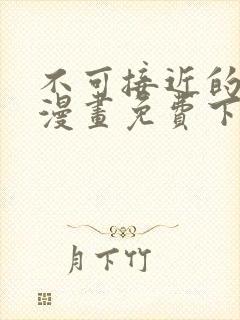 不可接近的
漫畫免費下
月下竹